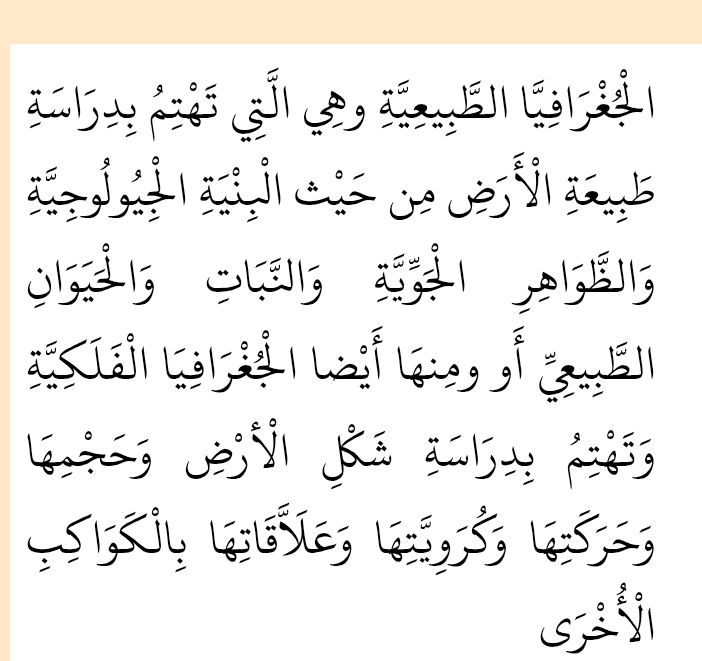 الْجُغْرَافِيَّا الطَّبِيعِيَّةِ وهِي الَّتِي تَهْتِمُ بِدِرَاسَةِ
طَبِيعَةِ الْأَرَضِ مِن حَيْث الْبِنْيَةِ الْجِيُولُوجِيَّةِ
وَالظَّوَاهِرِ الْجَوِّيَّةِ وَالنَّبَاتِ وَالْحَيَوَانِ
الطَّبِيعِيِّ أَو ومِنهَا أَيْضا الْجُغْرَافِيَا الْفَلَكِيَّةِ
وَتَهْتِمُ بِدِرَاسَةِ شَكْلِ الْأرْضِ وَحَجْمِهَا
وَحَرَكَتِهَا وَكُرَوِيَّتِهَا وَعَلَاَّقَاتِهَا بِالْكَوَاكِبِ
الْأُخْرَى